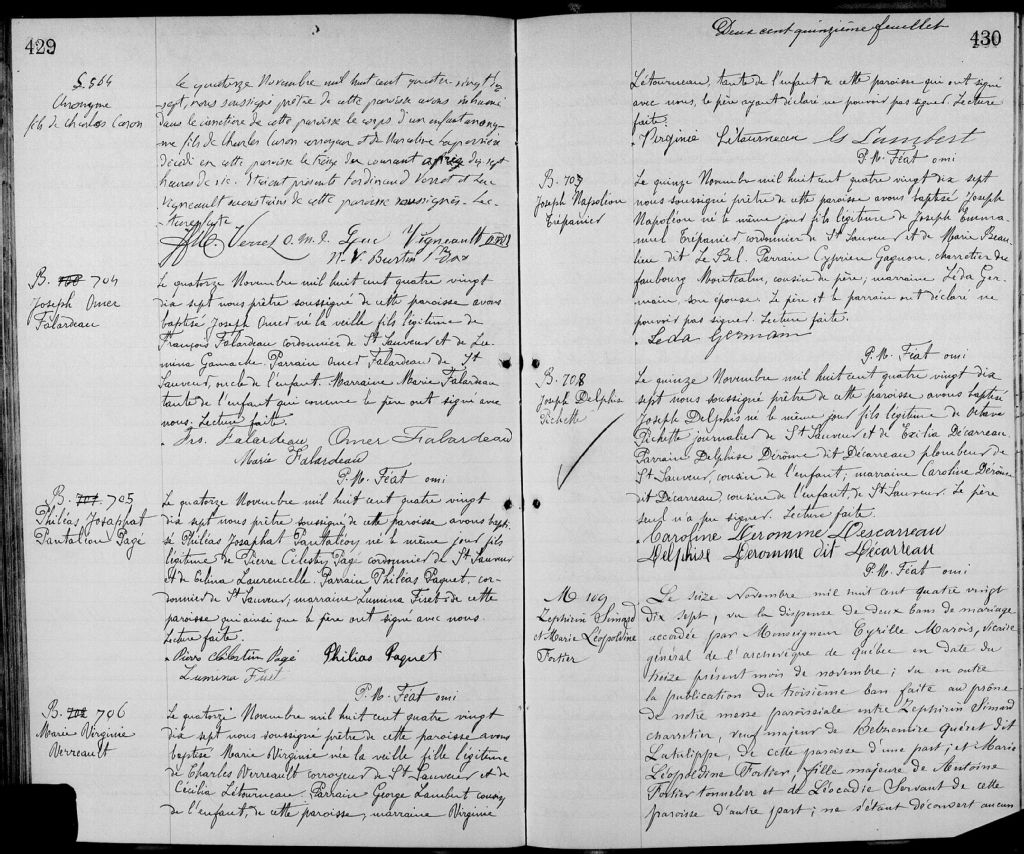 429
S. 564
Anonyme
fils de Charles Caron
Le quatorze Novembre mil huit cent quatre vingt dix
sept, nous soussigné prêtre de cette paroisse avons inhumé
dans le cimetière de cette paroisse le corps d'un enfant anony-
me fils de Charles Caron corroyeur et de
décédé en cette paroisse le treize du courant après dix sept
heures de vie. Etaient présents Ferdinand Verret et Luc
Vigneault sacristains de cette paroisse soussignés. Lec-
ture faite
Verret O.M.I. Luc Vigneault
B. 704
Joseph Omer
Falardeau
Le quatorze Novembre mil huit cent quatre vingt
dix sept nous prêtre soussigné de cette paroisse avons
baptisé Joseph Omer né la veille fils légitime de
François Falardeau cordonnier de St Sauveur et de Lu-
mina Gamache. Parrain Omer Falardeau de St
Sauveur, oncle de l'enfant. Marraine Marie Falardeau
tante de l'enfant qui comme le père ont signé avec
nous. Lecture faite.
Frs. Falardeau Omer Falardeau
Marie Falardeau
P. M. Féat omi
B. 705
Philéas Josaphat
Pantaléon Pagé
Le quatorze Novembre mil huit cent quatre vingt
dix sept nous prêtre soussigné de cette paroisse avons bapti-
sé Philéas Josaphat Pantaléon né le même jour fils
légitime de Pierre Célestin Pagé cordonnier de St Sauveur
et de Célina Laurencelle. Parrain Philéas Paquet, cor-
donnier de St Sauveur; marraine Lumina Fiset de cette
paroisse qui ainsi que le père ont signé avec nous.
Lecture faite.
Pierre Célestin Pagé Philias Paquet
Lumina Fiset
P. M. Féat omi
B. 706
Marie Virginie
Verreault
Le quatorze Novembre mil huit cent quatre vingt
dix sept nous soussigné prêtre de cette paroisse avons
baptisé Marie Virginie née la veille fille légitime
de Charles Verreault corroyeur de St Sauveur et de
Cécilia Létourneau. Parrain George Lambert cousin
de l'enfant, de cette paroisse, marraine Virginie
Deux cent quinzième feuillet
430
Létourneau, tante de l'enfant de cette paroisse qui ont signé
avec nous, le père ayant déclaré ne pouvoir pas signer. Lecture
faite.
Virginie Létourneau Lambert
P. M. Féat omi
B. 707
Joseph Napoléon
Trépanier
Le quinze Novembre mil huit cent quatre vingt dix sept
nous soussigné prêtre de cette paroisse avons baptisé Joseph
Napoléon né le même jour fils légitime de Joseph Emma-
nuel Trépanier cordonnier de St Sauveur et de Marie Beau-
lieu dit Le Bel. Parrain Cyprien Gagnon, charretier du
faubourg Montcalm, cousin du père; marraine Léda Ger-
main, son épouse. Le père et le parrain ont déclaré ne
pouvoir pas signer. Lecture faite.
Leda Germain
P. M. Féat omi
B. 708
Joseph Delphis
Pichette
Le quinze Novembre mil huit cent quatre vingt dix
sept nous soussigné prêtre de cette paroisse avons baptisé
Joseph Delphis né le même jour fils légitime de Octave
Pichette journalier de St Sauveur et de Exilia Décarreau.
Parrain Delphise Dérome dit Décarreau plombeur de
St Sauveur, cousin de l'enfant; marraine Caroline Dérome
dit Décarreau, cousine de l'enfant, de St Sauveur. Le père
seul n'a pu signer. Lecture faite.
Caroline Deromme Descarreau
Delphise Deromme dit Décarreau
P. M. Féat omi
M 109
Zéphirin Simard
et Marie Léopoldine
Fortier
Le seize Novembre mil huit cent quatre vingt
dix sept, vu la dispense de deux bans de mariage
accordée par Monseigneur Cyrille Marois, vicaire
général de l'archevêque de Québec en date du
treize présent mois de novembre; vu en outre
la publication du troisième ban faite au prône
de notre messe paroissiale entre Zéphirin Simard
charretier, veuf majeur de Quéret dit
Latulippe, de cette paroisse d'une part; et Marie
Léopoldine Fortier, fille majeure de Antoine
Fortier tonnelier et de Léocadie Servant de cette
paroisse d'autre part; ne s'étant découvert aucun